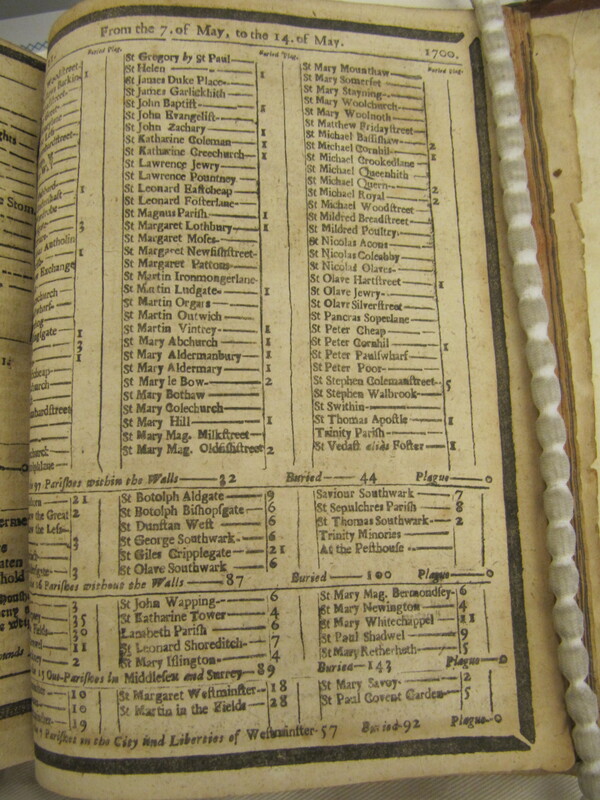 From the 7. of May, to the 14. of May. 1700.
Buried Plag. Buried Plag. Buried Plag.
St Gregory by St Paul
St Helen 1
St James Duke Place
St James Garlickhith
St John Baptist 1
St John Evangelist
St John Zachary 1
St Katharine Coleman 1
St Katharine Creechurch 1
St Lawrence Jewry
St Lawrence Pountney
St Leonard Eastcheap
St Leonard Fosterlane
St Magnus Parish 1
St Margaret Lothbury 1
St Margaret Moses
St Margaret Newfishstreet
St Margaret Pattons
St Martin Ironmongerlane
St Martin Ludgate 1
St Martin Orgars
St Martin Outwich
St Martin Vintrey 1
St Mary Abchurch 1
St Mary Aldermanbury 1
St Mary Aldermary 1
St Mary le Bow 2
St Mary Bothaw
St Mary Colechurch
St Mary Hill 1
St Mary Mag. Milkstreet
St Mary Mag. Oldfishstreet 2
St Mary Mounthaw
St Mary Somerset
St Mary Stayning
St Mary Woolchurch
St Mary Woolnoth
St Matthew Fridaystreet
St Michael Bassishaw 2
St Michael Cornhil
St Michael Crookedlane 1
St Michael Queenhith
St Michael Quern 2
St Michael Royal 2
St Michael Woodstreet
St Mildred Breadstreet
St Mildred Poultry
St Nicolas Acons
St Nicolas Coleabby
St Nicolas Olaves
St Olave Hartstreet 1
St Olave Jewry
St Olave Silverstreet
St Pancras Soperlane
St Peter Cheap
St Peter Cornhil 1
St Peter Paulswharf
St Peter Poor
St Stephen Colemanstreet 5
St Stephen Walbrook
St Swithin
St Thomas Apostle 1
Trinity Parish
St Vedast alias Foster 1
97 Parishes within the Walls 32 Buried 44 Plague 0
21
the Great 2
the Less
St Botolph Aldgate 9
St Botolph Bishopsgate 6
St Dunstan West 6
St George Southwark 6
St Giles Cripplegate 21
St Olave Southwark 6
Saviour Southwark 7
St Sepulchres Parish 8
St Thomas Southwark 2
Trinity Minories
At the Pesthouse
16 Parishes without the Walls 87 Buried 100 Plague 0
St John Wapping 6
St Katharine Tower 4
Lambeth Parish 6
St Leonard Shoreditch 7
St Mary Islington 4
St Mary Mag. Bermondsey 6
St Mary Newington 4
St Mary Whitechappel 11
St Paul Shadwel 9
St Mary Retherhith 5
15 Out-Parishes in Middlesex and Surrey 89 Buried 143 Plague 0
10
10
19
St Margaret Westminster 18
St Martin in the Fields 28
St Mary Savoy 2
St Paul Covent Garden 5
Parishes in the City and Liberties of Westminster 57 Buried 92 Plague 0